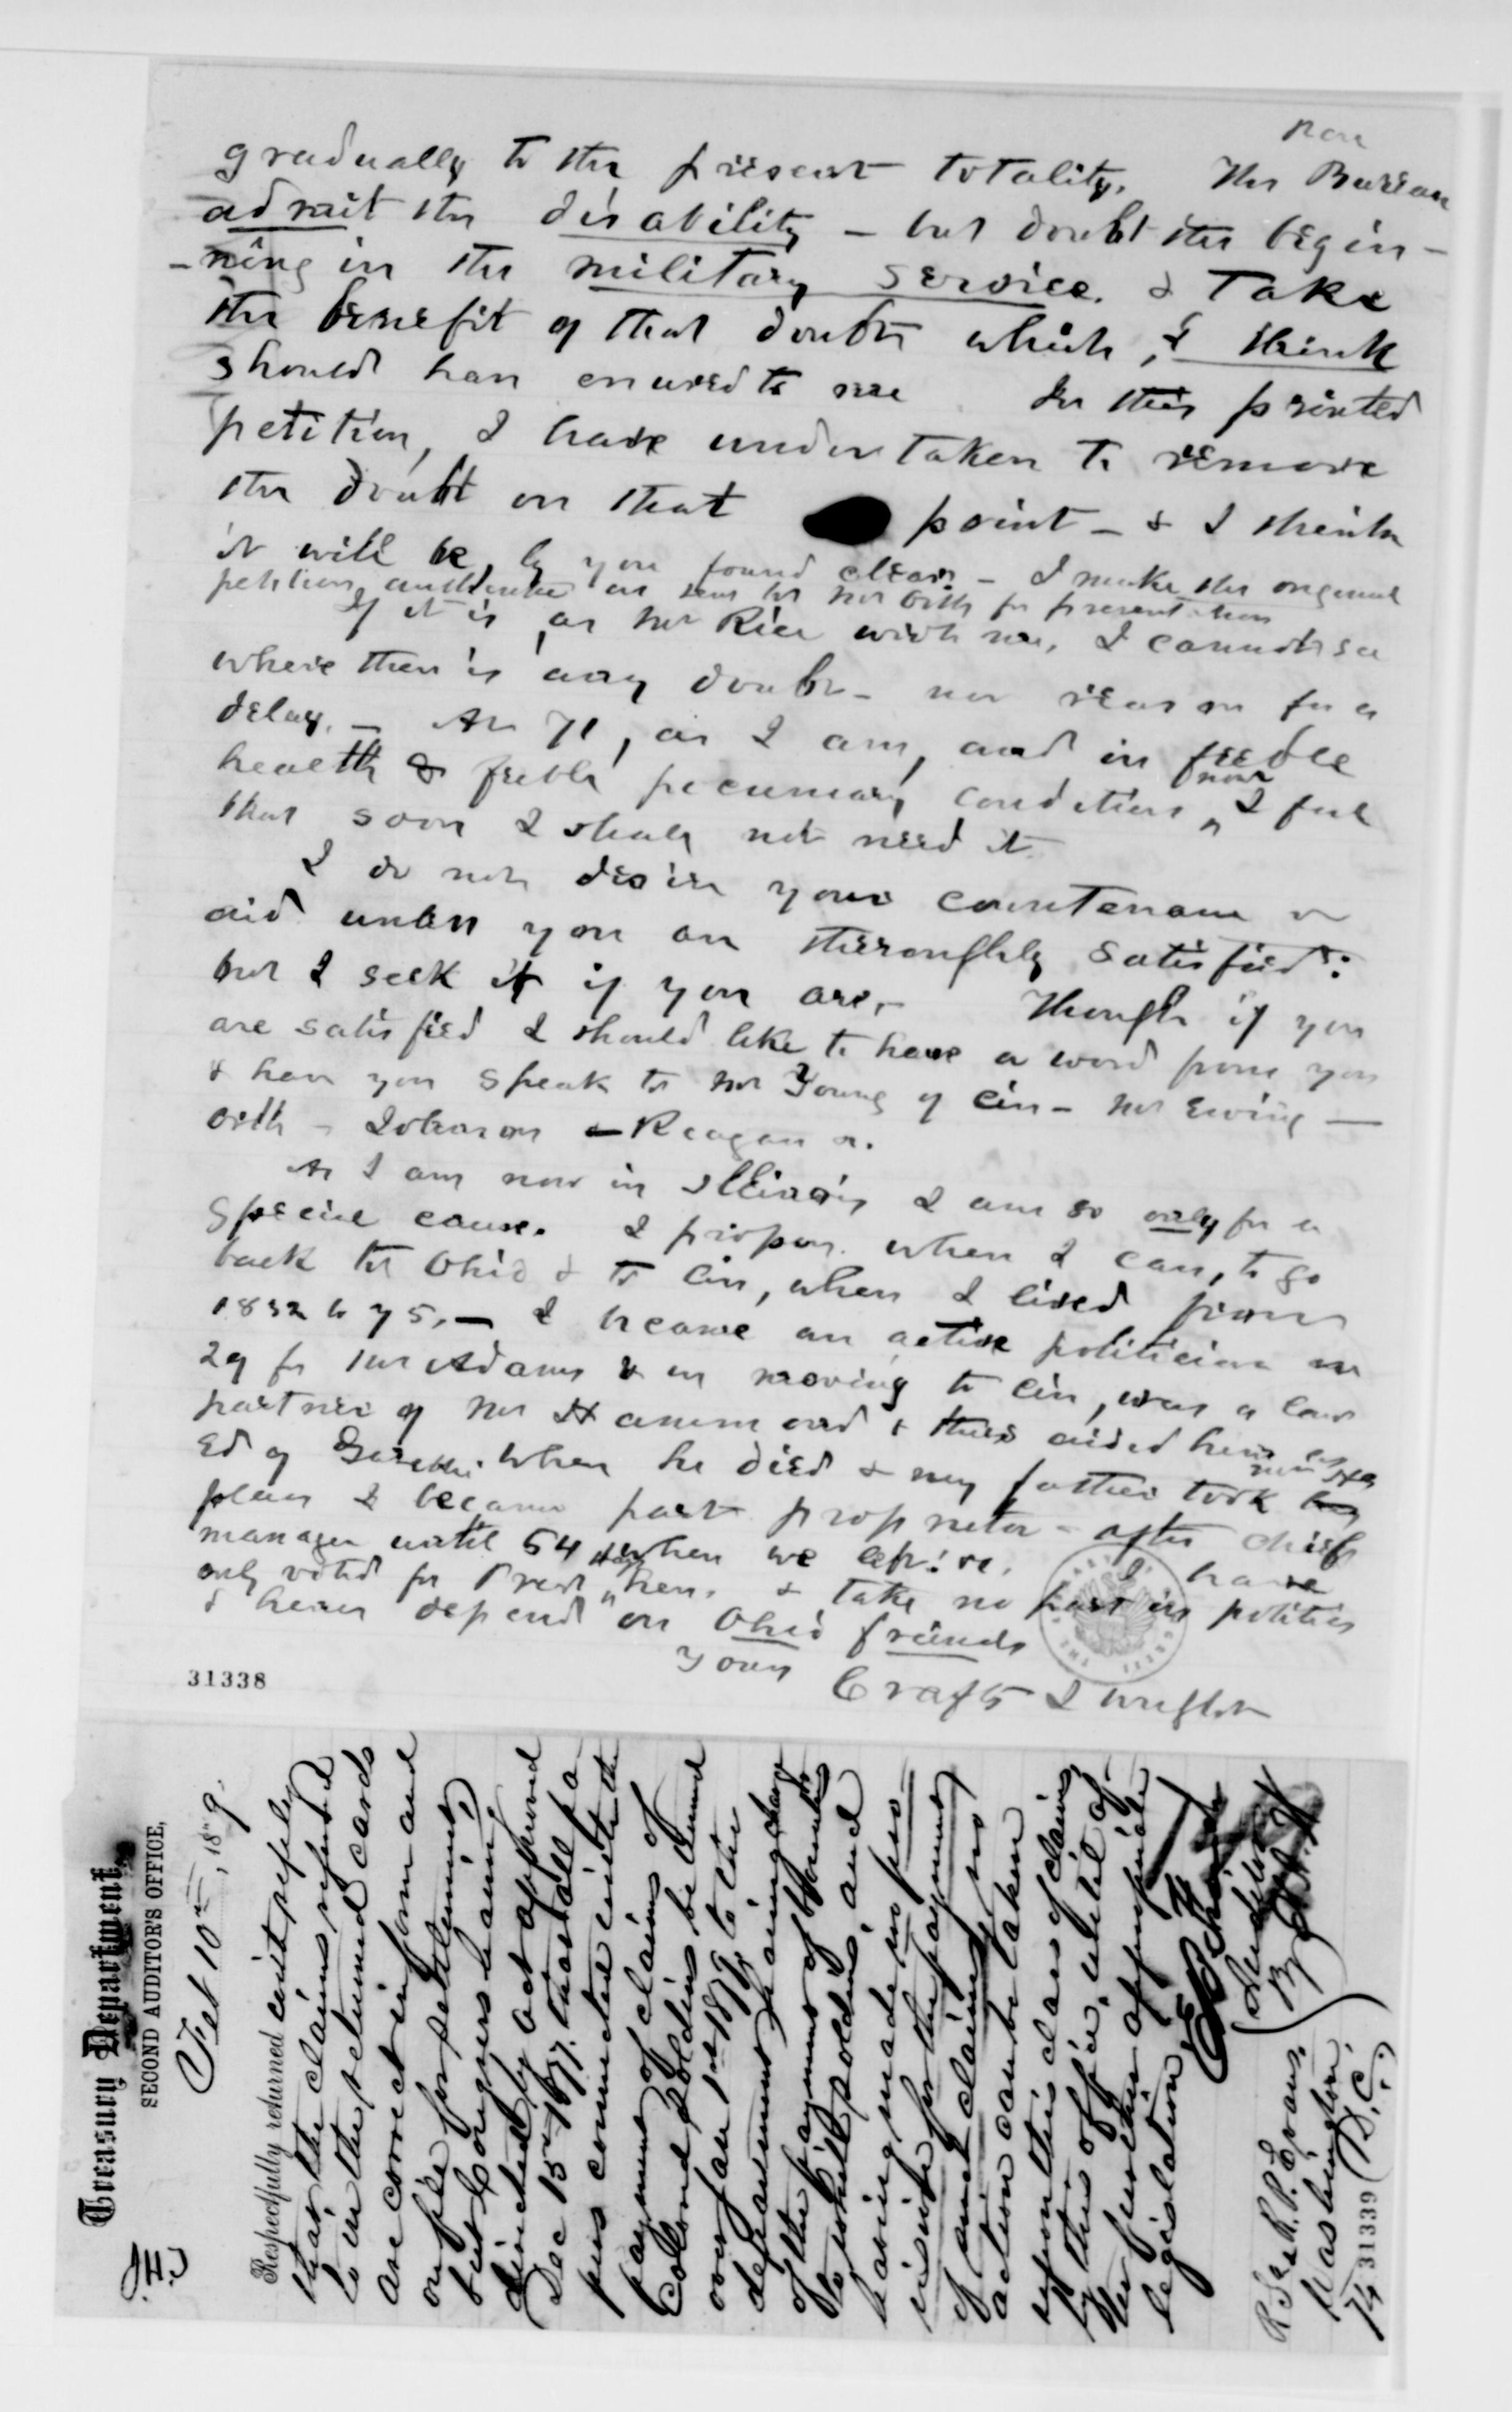 now
gradually to the present totality. The Bureau
admit the disability - but doubt the begin-
-ning in the military service. & take
the benefit of that doubt which, I think
should have enured to me In this printed
petition, I have undertaken to remove
the doubt on that point - & I think
it will be, by you found clear - I make the original
petition, authentic for presentation
If it is, as Mr Rice with me, I cannot see
where there is any doubt - nor reason for a
delay. - At 71, as I am, and in feeble
health & feeble pecuniary condition now I feel
that soon I shall not need it.
I do not desire your countenance or
aid unless you are thoroughly satisfied:
but I seek it if you are. - Though if you
are satisfied I should like to have a word from you
& have you speak to Mr Young of Cin - Mr Ewing -
Orth - Johnson - Reagan
As I am now in Illinois I am so only for a
special cause. I propose when I can, to go
back to Ohio & to Cin, where I lived from
1832 to 75. - I became an active politician in
29 for Mr Adams & on moving to Cin, was a law
partner of Mr Hammond & thus aided him as
Ed of Gazette. When he died & my father took
place I became part proprietor - after chief
manager until 54 when we I have
only voted for Presdt then. & take no part in politics
& hence depend on Ohio friends
Yours Crafts J Wright
31338
Treasury Department,
SECOND AUDITOR'S OFFICE,
Feb 10th, 1879.
Respectfully returned with reply
that the claims referred
to in the returned cards
are correct in form and
on file for settlement,
but Congress having
directed by act approved
Dec 15th 1877, that all pa-
pers connected with the
payment of claims of
Colored Soldiers be turned
over Jan 1st 1879 to the
department having charge
of the payment of bounties
to white soldiers, and
having made no pro-
vision for the payment
of such claims, no
action can be taken
upon this class of claims
by this office, until af-
ter further appropriate
legislation.
Auditor
By
R. P. Evans,
Washington
D.C.
31339